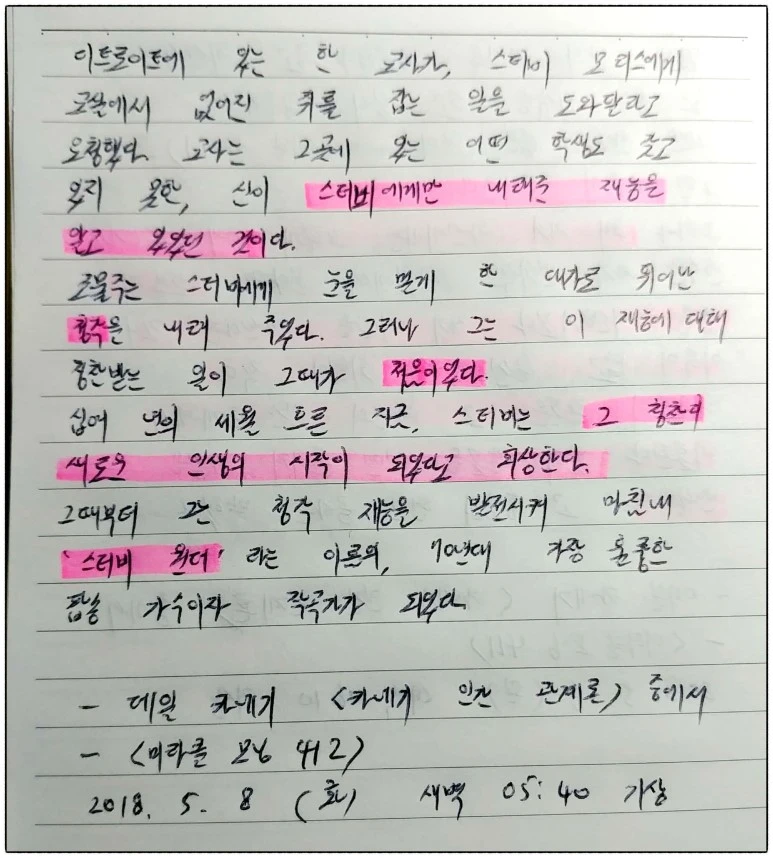 디트로이트에 있는 한 교사가, 스티비 모리스에게
교실에서 없어진 쥐를 잡는 일을 도와달라고
요청했다. 교사는 그곳에 있는 어떤 학생도 갖고
있지 못한, 신이 스티비에게만 내려준 재능을
알고 있었던 것이다.
조물주는 스티비에게 눈을 멀게 한 대가로 뛰어난
청각을 내려 주었다. 그러나 그는 이 재능에 대해
칭찬받는 일이 그때가 처음이었다.
십여 년의 세월 흐른 지금, 스티비는 그 칭찬이
새로운 인생의 시작이 되었다고 회상한다.
그때부터 그는 청각 재능을 발전시켜 마침내
'스티비 원더' 라는 이름의, 70년대 가장 훌륭한
팝송 가수이자 작곡가가 되었다.
- 데일 카네기 <카네기 인간 관계론> 중에서
- <미라클 모닝 412>
2018. 5. 8 (화) 새벽 05:40 기상